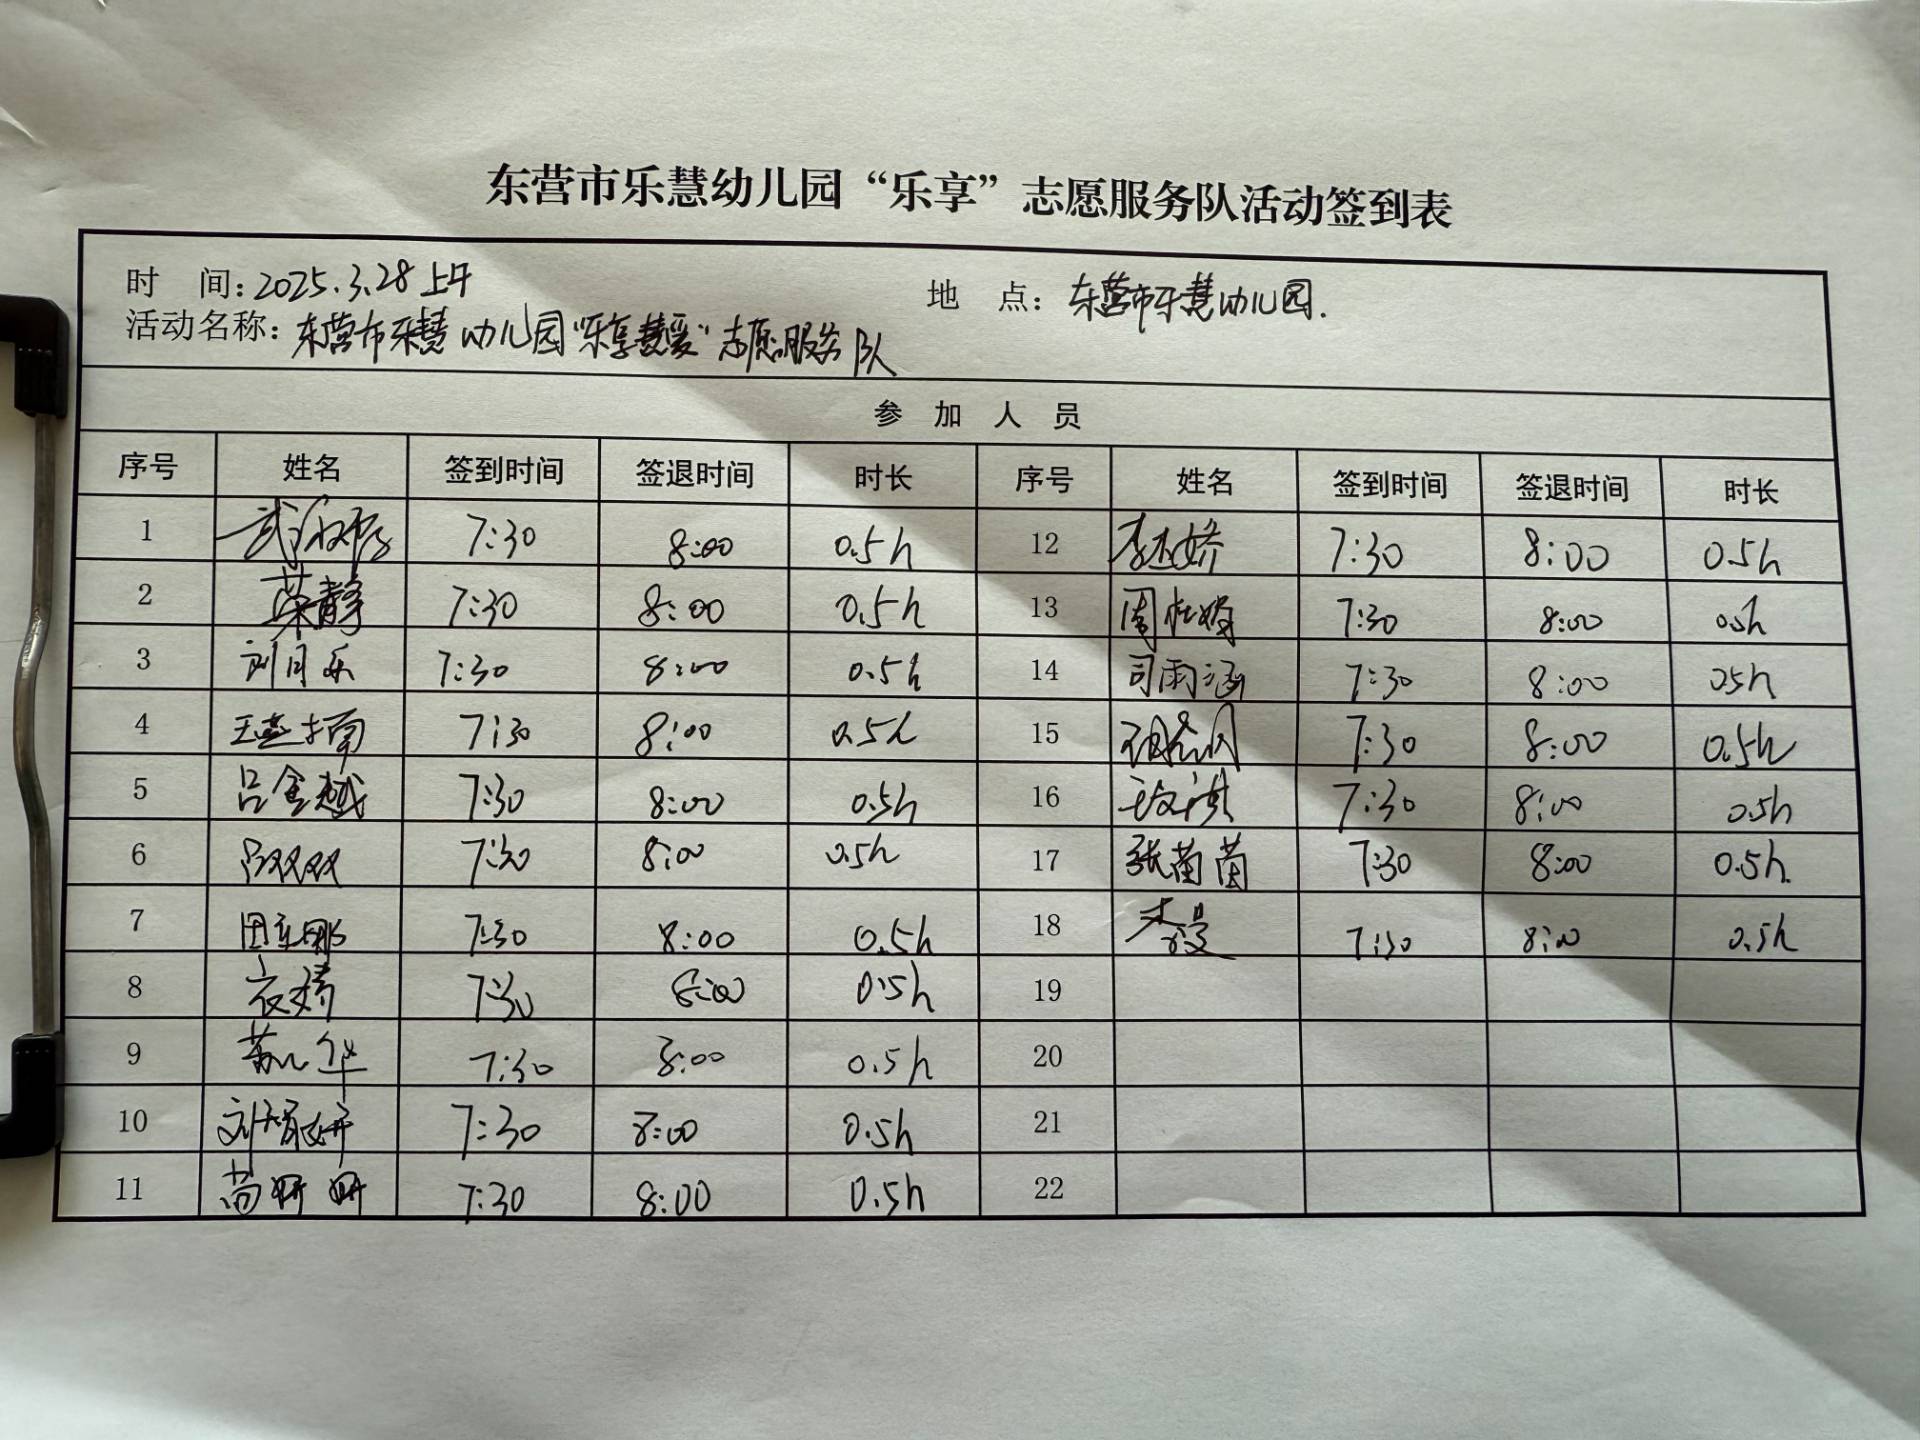 东营市乐慧幼儿园“乐享”志愿服务队活动签到表
时 间：2025.3.28上午 地 点：东营市乐慧幼儿园.
活动名称：东营市乐慧幼儿园“乐享慧爱”志愿服务队
参 加 人 员
序号 姓名 签到时间 签退时间 时长 序号 姓名 签到时间 签退时间 时长
1 7:30 8:00 0.5h 12 7:30 8:00 0.5h
2 荣静 7:30 8:00 0.5h 13 7:30 8:00 0.5h
3 刘月乐 7:30 8:00 0.5h 14 司雨涵 7:30 8:00 0.5h
4 王燕楠 7:30 8:00 0.5h 15 7:30 8:00 0.5h
5 吕金越 7:30 8:00 0.5h 16 7:30 8:00 0.5h
6 吕双双 7:30 8:00 0.5h 17 张茵茵 7:30 8:00 0.5h.
7 7:30 8:00 0.5h 18 7:30 8:00 0.5h
8 衣婧 7:30 8:00 0.5h 19
9 7:30 8:00 0.5h 20
10 7:30 8:00 0.5h 21
11 尚妍妍 7:30 8:00 0.5h 22